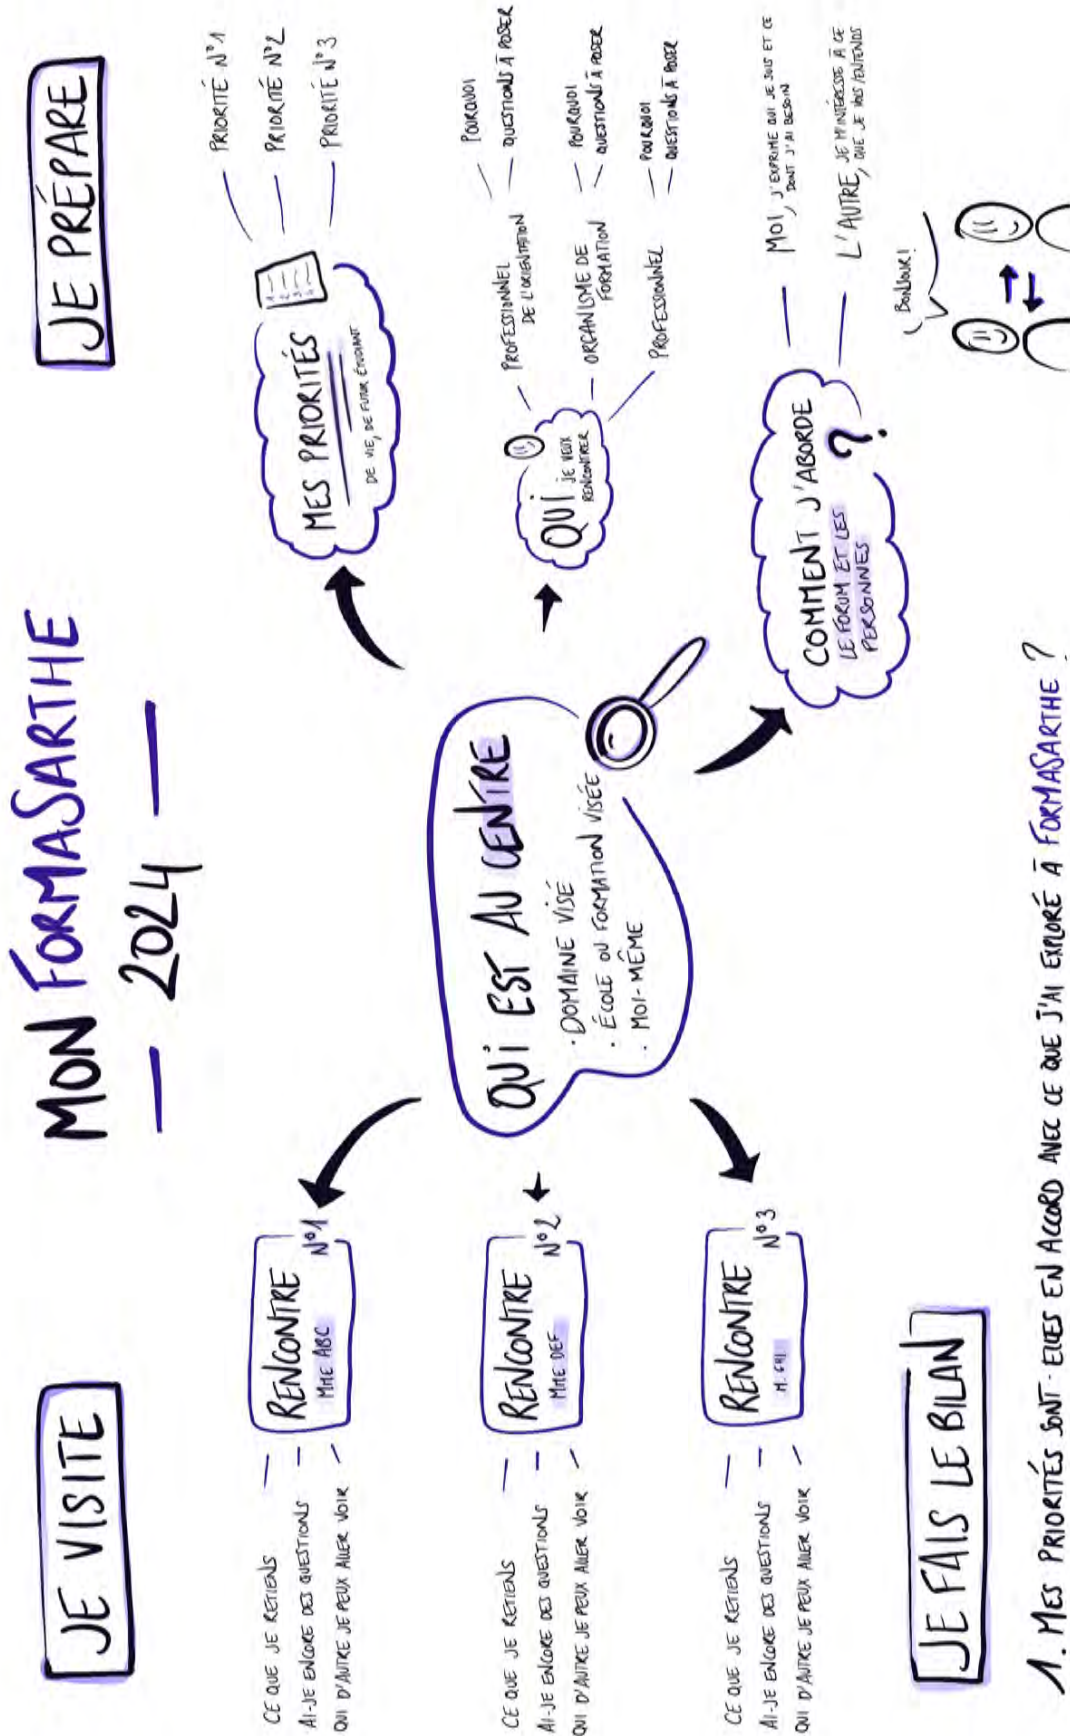 MON FORMASARTHE
— 2024 —
JE VISITE
RENCONTRE
MME ABC
N°1
CE QUE JE RETIENS
AI-JE ENCORE DES QUESTIONS
QUI D'AUTRE JE PEUX ALLER VOIR
RENCONTRE
MME DEF
N°2
CE QUE JE RETIENS
AI-JE ENCORE DES QUESTIONS
QUI D'AUTRE JE PEUX ALLER VOIR
RENCONTRE
M. GHI
N°3
CE QUE JE RETIENS
AI-JE ENCORE DES QUESTIONS
QUI D'AUTRE JE PEUX ALLER VOIR
QUI EST AU CENTRE
· DOMAINE VISÉ
· ÉCOLE OU FORMATION VISÉE
· MOI-MÊME
JE PRÉPARE
MES PRIORITÉS
DE VIE, DE FUTUR ÉTUDIANT
1
2
3
4
PRIORITÉ N°1
PRIORITÉ N°2
PRIORITÉ N°3
QUI
JE VEUX
RENCONTRER
PROFESSIONNEL
DE L'ORIENTATION
POURQUOI
QUESTIONS À POSER
ORGANISME DE
FORMATION
POURQUOI
QUESTIONS À POSER
PROFESSIONNEL
POURQUOI
QUESTIONS À POSER
COMMENT J'ABORDE
LE FORUM ET LES
PERSONNES
?
MOI, J'EXPRIME QUI JE SUIS ET CE
DONT J'AI BESOIN
L'AUTRE, JE M'INTÉRESSE À CE
QUE JE VOIS/ENTENDS
BONJOUR!
JE FAIS LE BILAN
1. MES PRIORITÉS SONT-ELLES EN ACCORD AVEC CE QUE J'AI EXPLORÉ À FORMASARTHE ?